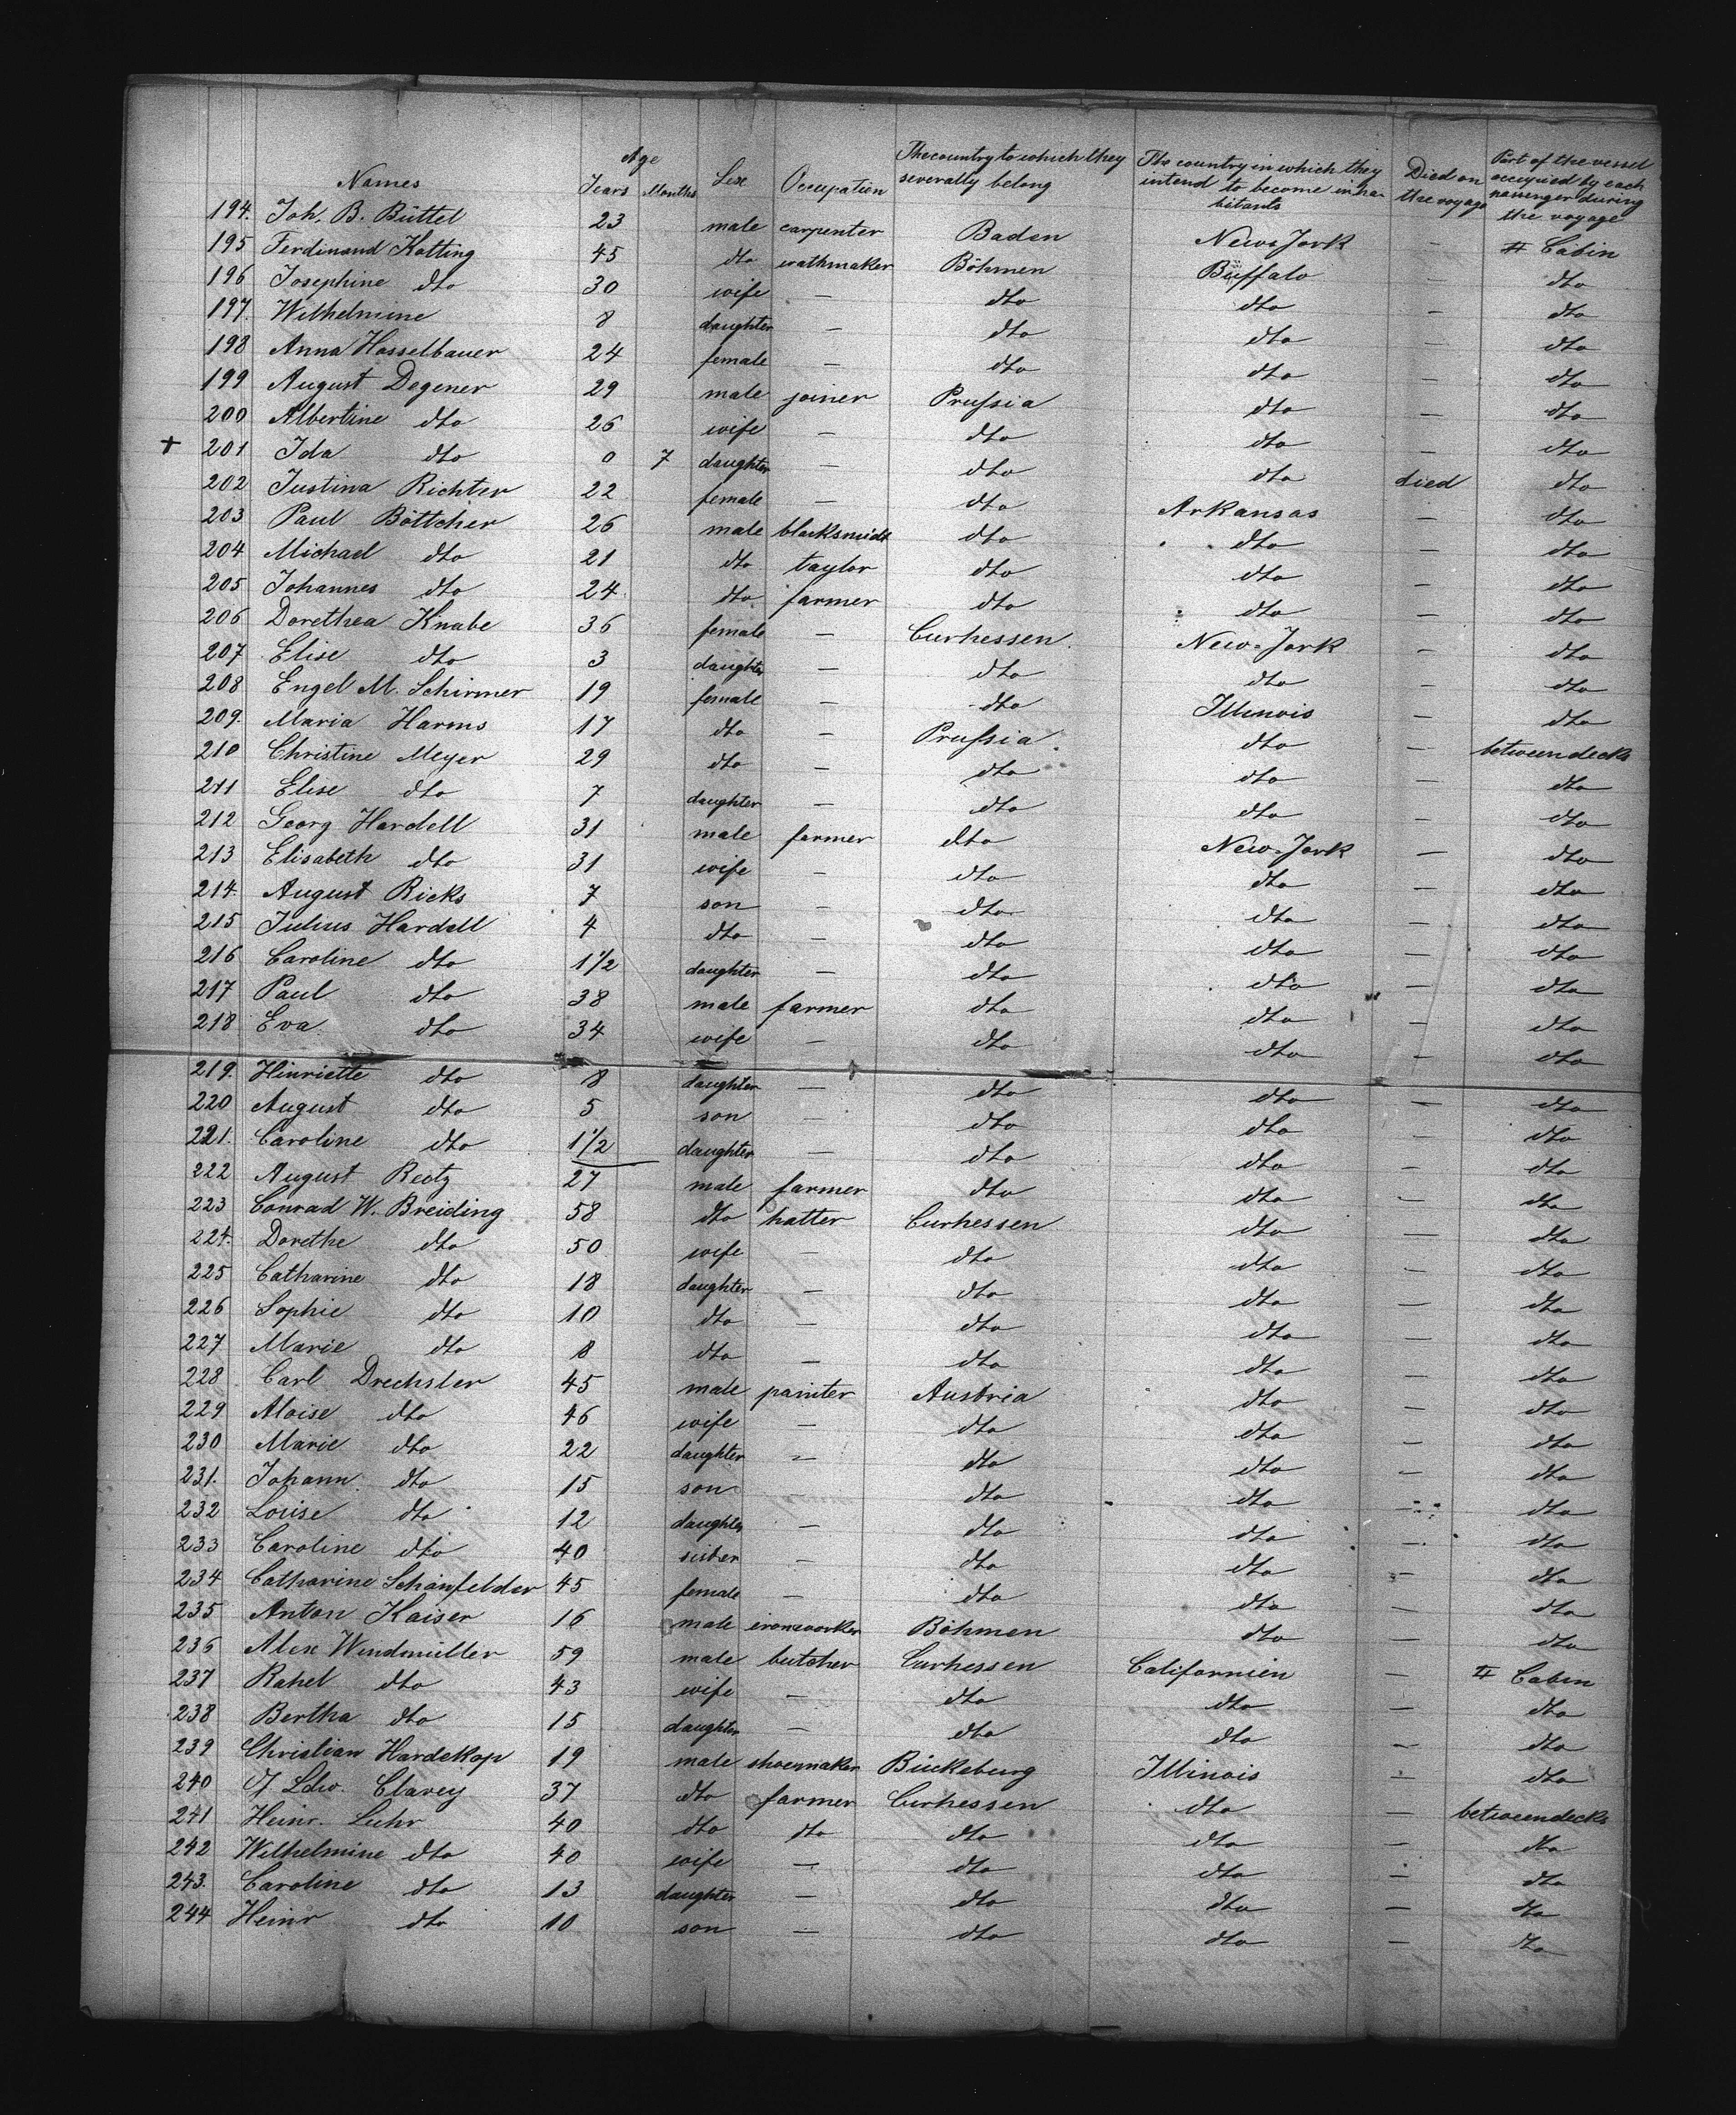 Names Age Years Months Sex Occupation The country to which they severally belong The country in which they intend to become inhabitants Died on the voyage Part of the vessel occupied by each passenger during the voyage
194. Joh. B. Büttel 23 male carpenter Baden New-Jork — II Cabin
195 Ferdinand Kotting 45 dto wathmaker Böhmen Büffalo — dto
196 Josephine dto 30 wife — dto dto — dto
197. Wilhelmine 8 daughter — dto dto — dto
198 Anna Hasselbauer 24 female — dto dto — dto
199 August Degener 29 male joiner Prussia dto — dto
200 Albertine dto 26 wife — dto dto — dto
+ 201 Ida dto 0 7 daughter — dto dto died dto
202 Justina Richter 22 female — dto Arkansas — dto
203 Paul Böttcher 26 male blacksmidt dto dto — dto
204 Michael dto 21 dto taylor dto dto — dto
205 Johannes dto 24 dto farmer dto dto — dto
206 Dorethea Knabe 36 female — Curhessen New-Jork — dto
207 Elise dto 3 daughter — dto dto — dto
208 Engel M. Schirmer 19 female — dto Illinois — dto
209. Maria Harms 17 dto — Prussia dto — betweendecks
210 Christine Meyer 29 dto — dto dto — dto
211 Elise dto 7 daughter — dto dto — dto
212 Georg Hardell 31 male farmer dto New-Jork — dto
213 Elisabeth dto 31 wife — dto dto — dto
214. August Ricks 7 son — dto dto — dto
215 Julius Hardell 4 dto — dto dto — dto
216 Caroline dto 1 1/2 daughter — dto dto — dto
217 Paul dto 38 male farmer dto dto — dto
218 Eva dto 34 wife — dto dto — dto
219. Hinriette dto 8 daughter — dto dto — dto
220 August dto 5 son — dto dto — dto
221. Caroline dto 1 1/2 daughter — dto dto — dto
222 August Reotz 27 male farmer dto dto — dto
223 Conrad W. Breiding 58 dto hatter Curhessen dto — dto
224. Dorethe dto 50 wife — dto dto — dto
225 Catharine dto 18 daughter — dto dto — dto
226 Sophie dto 10 dto — dto dto — dto
227 Marie dto 8 dto — dto dto — dto
228 Carl Drechsler 45 male painter Austria dto — dto
229 Aloise dto 46 wife — dto dto — dto
230 Marie dto 22 daughter — dto dto — dto
231. Johann dto 15 son dto dto — dto
232 Louise dto 12 daughter — dto dto — dto
233 Caroline dto 40 sister — dto dto — dto
234 Catharine Schönfelder 45 female — dto dto — dto
235 Anton Kaiser 16 male ironworker Böhmen dto — dto
236 Alex Windmüller 59 male butcher Curhessen Californien — II Cabin
237 Rahel dto 43 wife — dto dto — dto
238 Bertha dto 15 daughter — dto dto — dto
239 Christian Hardekop 19 male shoemaker Bückeburg Illinois — dto
240 Ldw. Clarey 37 dto farmer Curhessen dto — betweendecks
241 Heinr. Luhr 40 dto dto dto dto — dto
242 Wilhelmine dto 40 wife — dto dto — dto
243. Caroline dto 13 daughter — dto dto — dto
244 Heinr dto 10 son — dto dto — dto